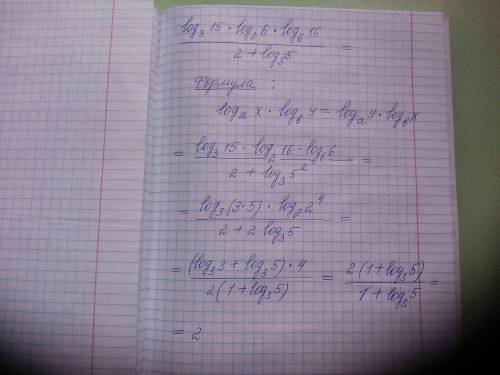 (log₃15 · log₂6 · log₆16) / (2 + log₃5) =
Формула :
logₐ x · log_b y = logₐ y · log_b x
= (log₃15 · log₂16 · log₆6) / (2 + log₃5²) =
= (log₃(3·5) · log₂2⁴) / (2 + 2 log₃5) =
= ((log₃3 + log₃5) · 4) / (2(1 + log₃5)) = (2(1 + log₃5)) / (1 + log₃5) =
= 2